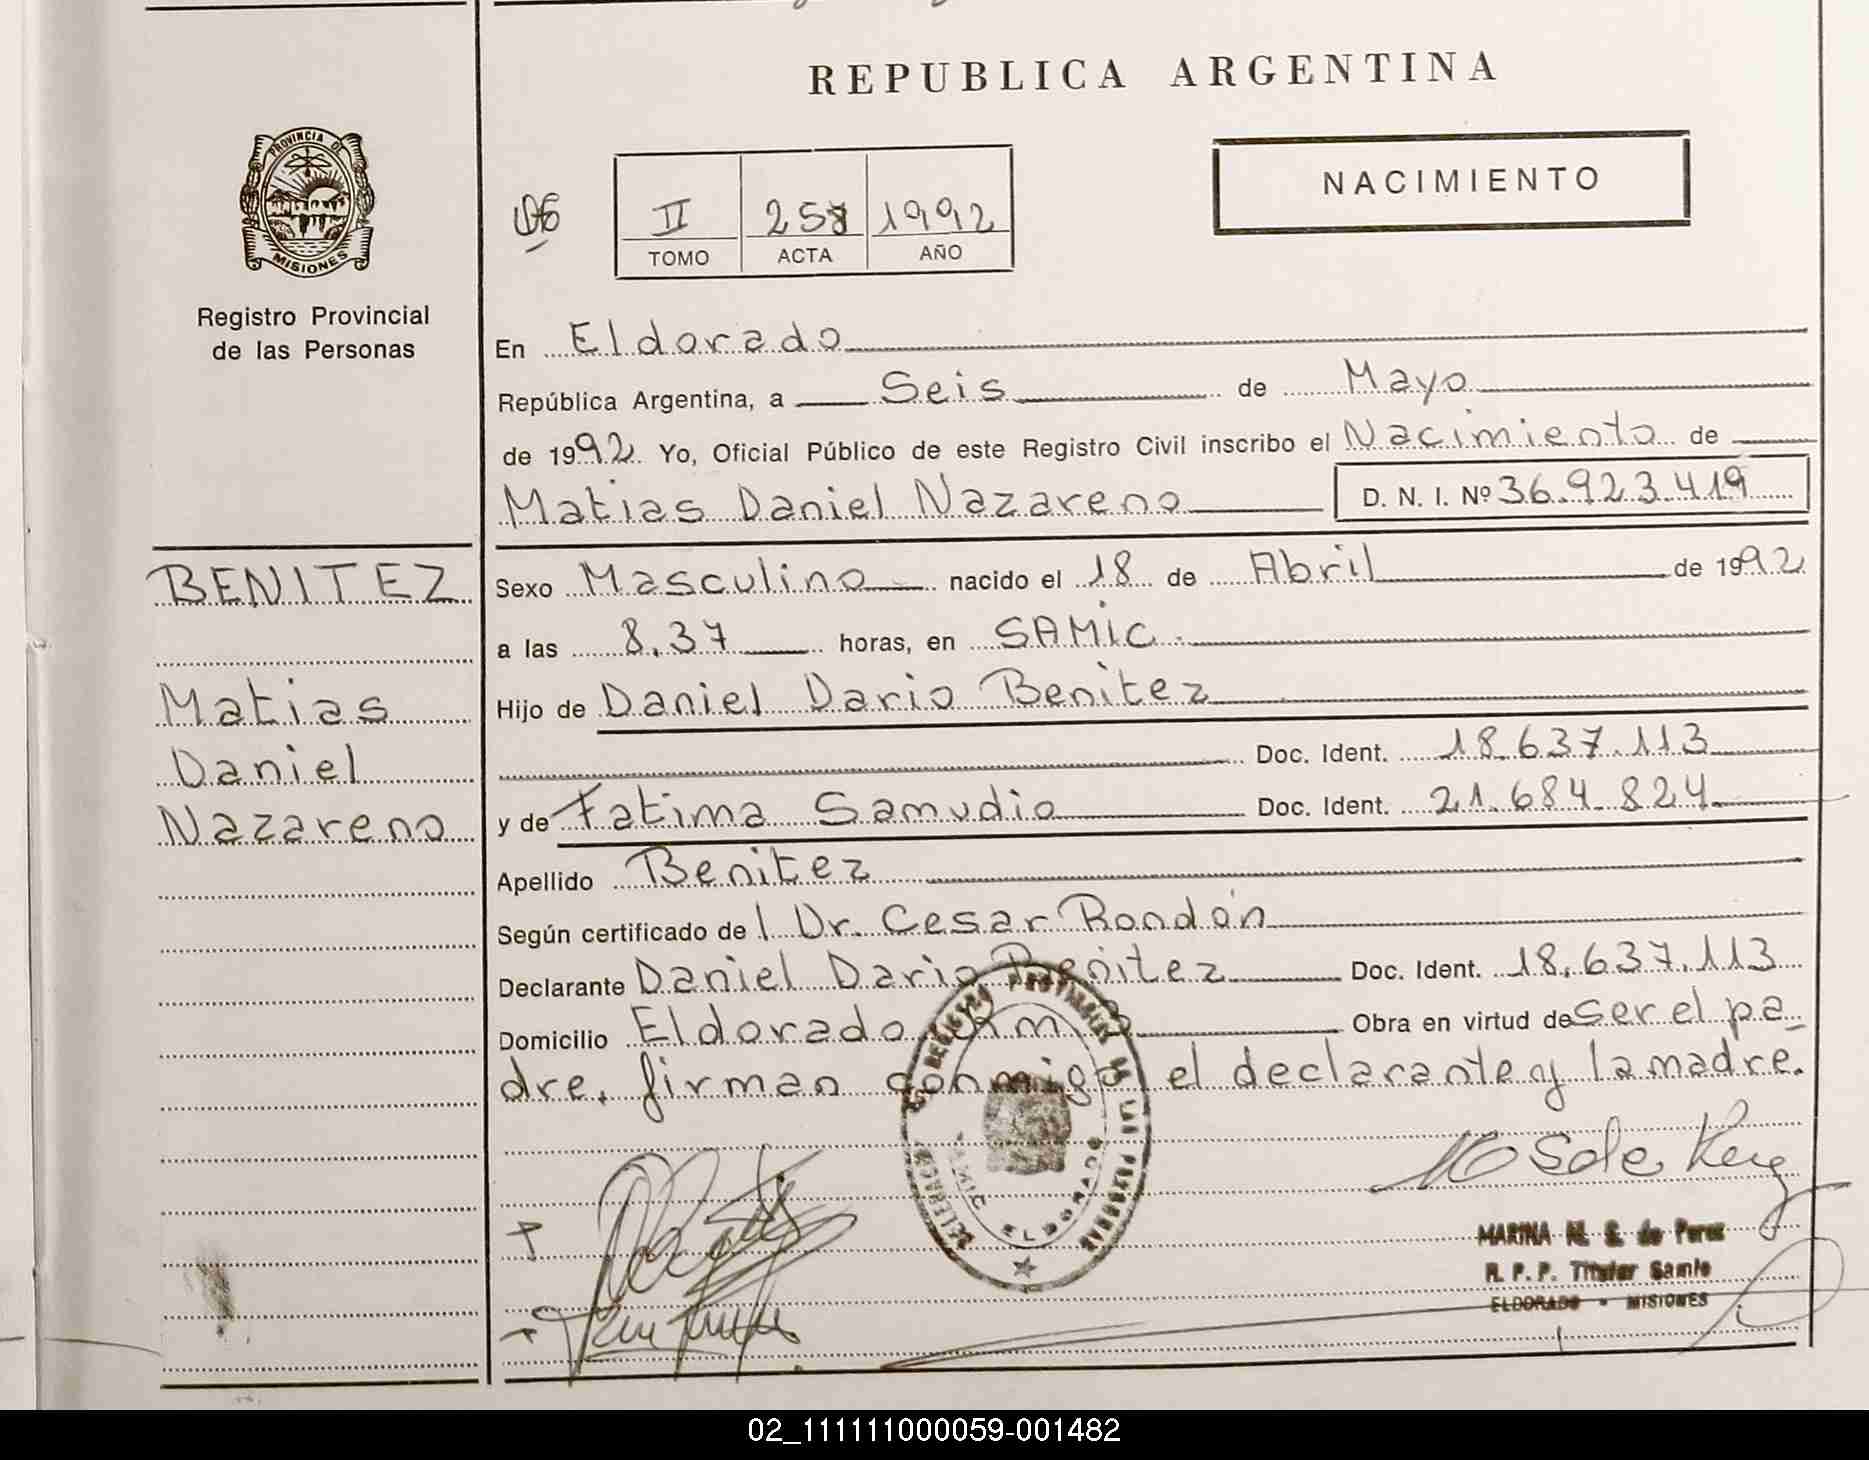 REPUBLICA ARGENTINA
PROVINCIA DE
MISIONES
Registro Provincial
de las Personas
NACIMIENTO
II 1992
TOMO ACTA AÑO
En Eldorado
República Argentina, a Seis de Mayo
de 1992 Yo, Oficial Público de este Registro Civil inscribo el Nacimiento de
Matias Daniel Nazareno D. N. I. Nº 36.923.419
BENITEZ
Matias
Daniel
Nazareno
Sexo Masculino nacido el 18 de Abril de 1992
a las 8.37 horas, en SAMIC.
Hijo de Daniel Dario Benitez
Doc. Ident. 18.637.113
y de Fatima Samudio Doc. Ident. 21.684.824
Apellido Benitez
Según certificado del Dr. Cesar Rondón
Declarante Daniel Dario Benitez Doc. Ident. 18.637.113
Domicilio Eldorado Obra en virtud de ser el pa_
dre, firman conmigo el declarante y la madre.
REGISTRO PROVINCIAL DE LAS PERSONAS
DELEGACION
SAMIC ELDORADO
MARINA M. S. de Perez
R. P. P. Titular Samic
ELDORADO - MISIONES
02_111111000059-001482